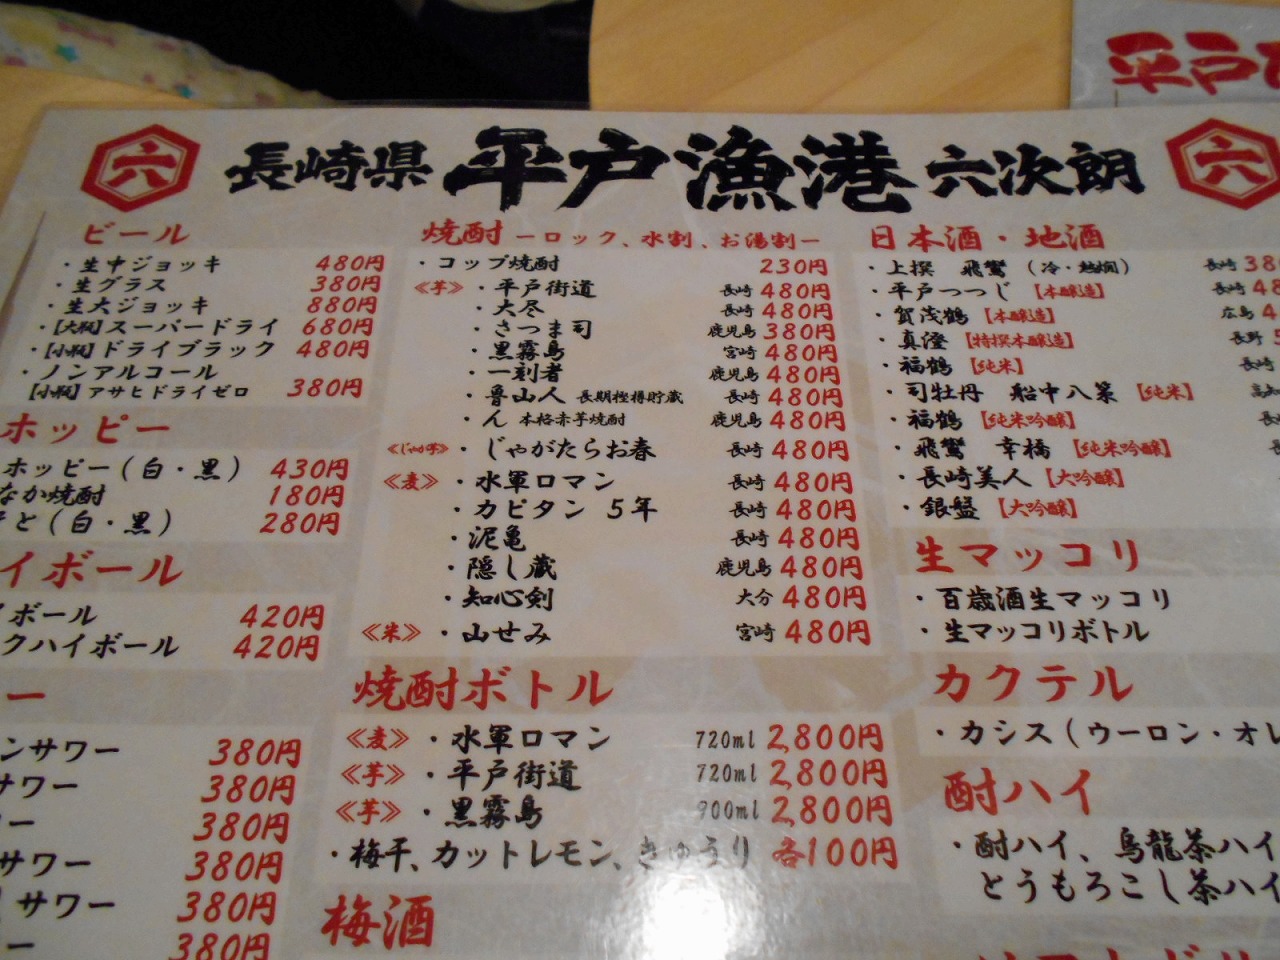 六 長崎県 平戸漁港 六次朗 六
平戸
ビール
・生中ジョッキ 480円
・生グラス 380円
・生大ジョッキ 880円
・【大瓶】スーパードライ 680円
・【小瓶】ドライブラック 480円
・ノンアルコール
【小瓶】アサヒドライゼロ 380円
ホッピー
ホッピー(白・黒) 430円
なか焼酎 180円
そと(白・黒) 280円
イボール
イボール 420円
クハイボール 420円
ー
ンサワー 380円
サワー 380円
ー 380円
サワー 380円
サワー 380円
ー 380円
焼酎 ーロック、水割、お湯割ー
・コップ焼酎 230円
《芋》・平戸街道 長崎 480円
・大尽 長崎 480円
・さつま司 鹿児島 380円
・黒霧島 宮崎 480円
・一刻者 鹿児島 480円
・魯山人 長期樫樽貯蔵 長崎 480円
・ん 本格赤芋焼酎 鹿児島 480円
《じゃが芋》・じゃがたらお春 長崎 480円
《麦》・水軍ロマン 長崎 480円
・カピタン 5年 長崎 480円
・泥亀 長崎 480円
・隠し蔵 鹿児島 480円
・知心剣 大分 480円
《米》・山せみ 宮崎 480円
焼酎ボトル
《麦》・水軍ロマン 720ml 2,800円
《芋》・平戸街道 720ml 2,800円
《芋》・黒霧島 900ml 2,800円
・梅干、カットレモン、きゅうり 各100円
梅酒
日本酒・地酒
・上撰 飛鸞(冷・熱燗) 長崎 38
・平戸つつじ【本醸造】 長崎 48
・賀茂鶴【本醸造】 広島 4
・真澄【特撰本醸造】 長野
・福鶴【純米】 長崎
・司牡丹 船中八策【純米】 高知
・福鶴【純米吟醸】 長
・飛鸞 幸橋【純米吟醸】
・長崎美人【大吟醸】
・銀盤【大吟醸】
生マッコリ
・百歳酒生マッコリ
・生マッコリボトル
カクテル
・カシス(ウーロン・オレ
酎ハイ
・酎ハイ、烏龍茶ハイ
とうもろこし茶ハイ